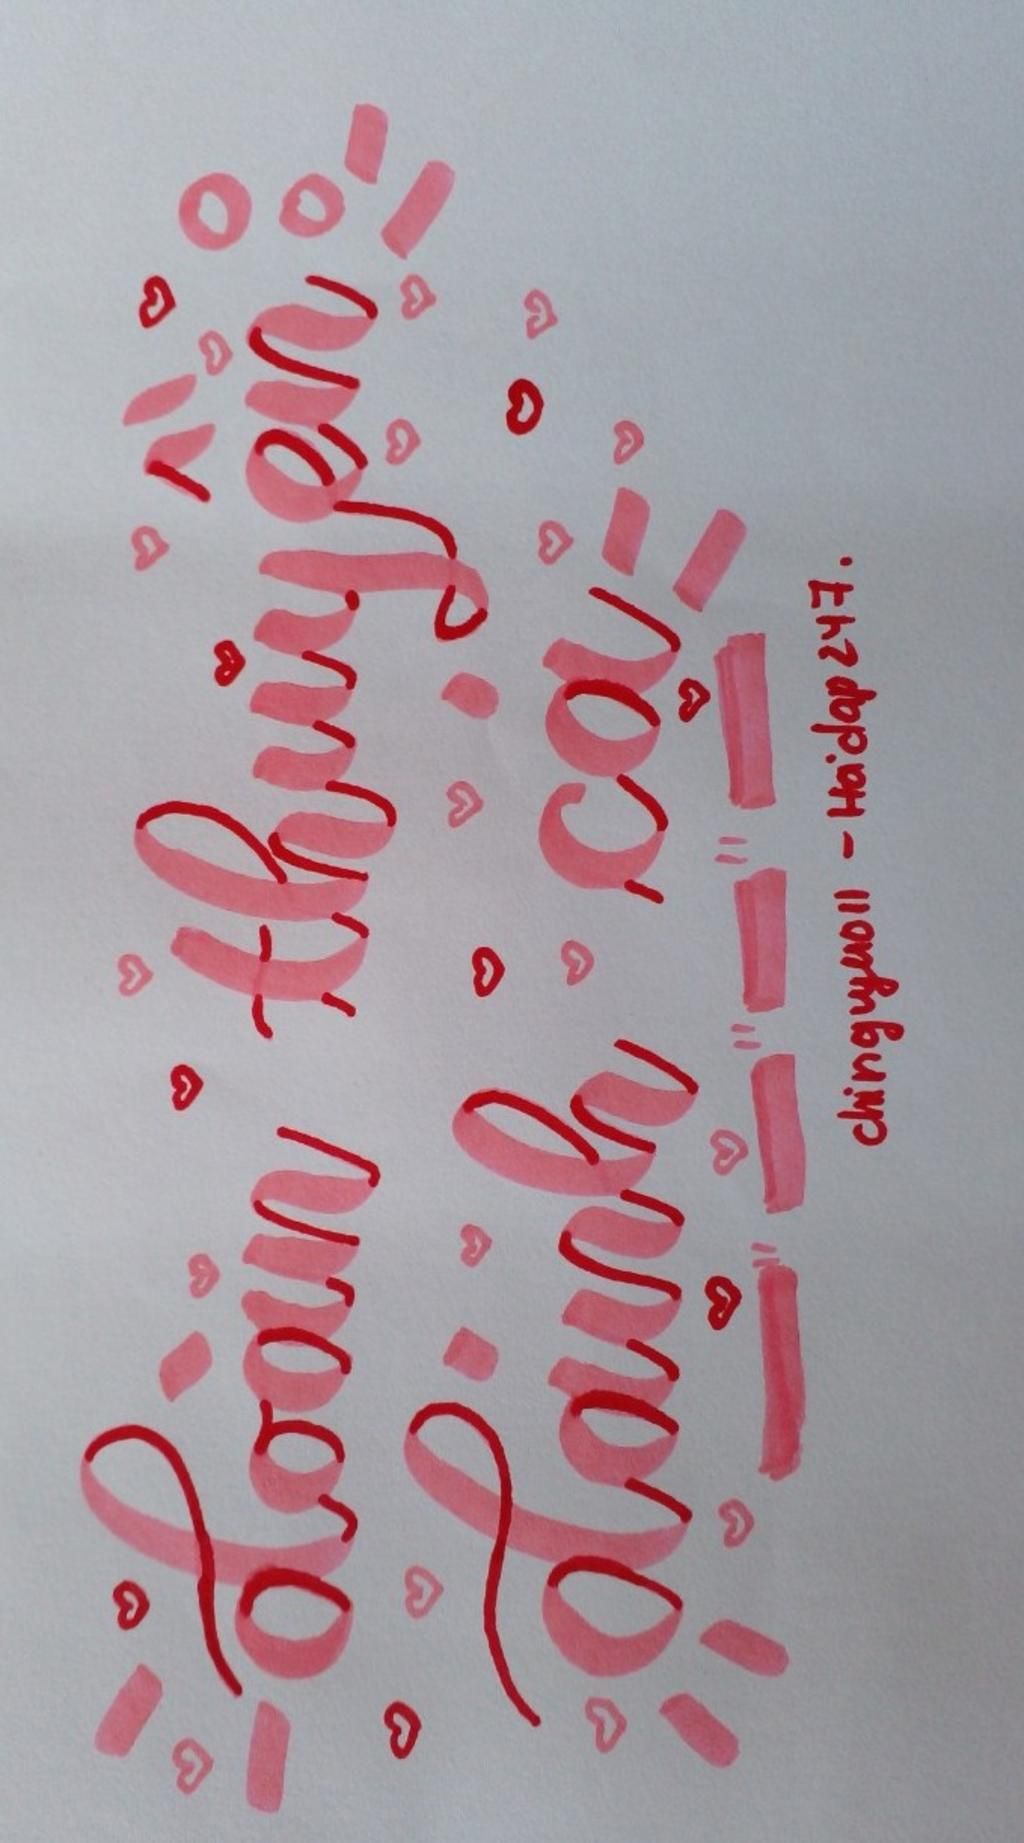 đoàn thuyền
đánh cá
chinguyuo11 - Haidap247.